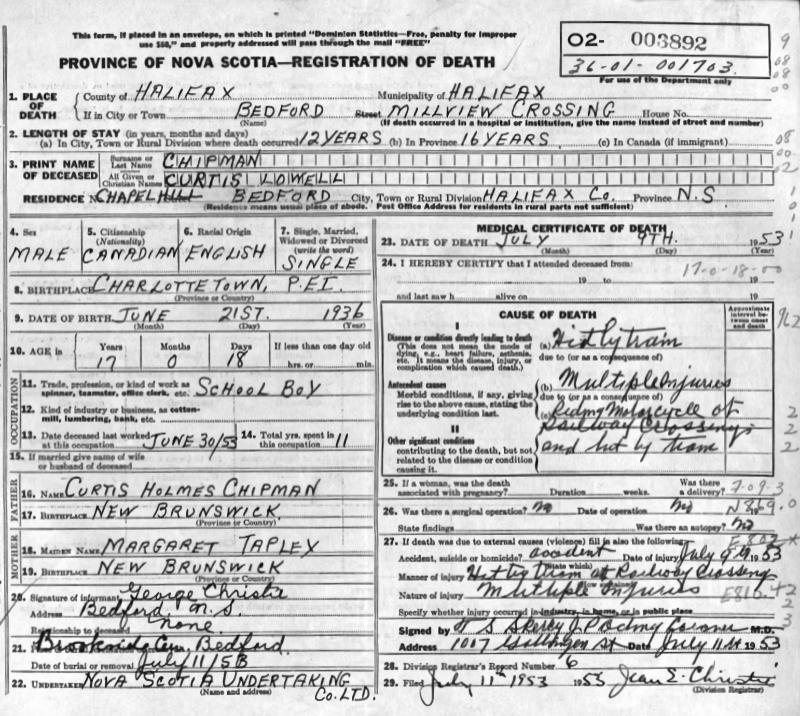 This form, if placed in an envelope, on which is printed "Dominion Statistics—Free, penalty for improper
use $50," and properly addressed will pass through the mail "FREE"
PROVINCE OF NOVA SCOTIA—REGISTRATION OF DEATH
O2- 003892
36-01-001703
For use of the Department only
1. PLACE OF DEATH
County of HALIFAX Municipality of HALIFAX
If in City or Town BEDFORD Street MILLVIEW CROSSING House No.
(Name) (If death occurred in a hospital or institution, give the name instead of street and number)
2. LENGTH OF STAY (in years, months and days)
(a) In City, Town or Rural Division where death occurred 12 YEARS (b) In Province 16 YEARS (c) In Canada (if immigrant)
3. PRINT NAME OF DECEASED
Surname or Last Name CHIPMAN
All Given or Christian Names CURTIS LOWELL
RESIDENCE N CHAPEL HILL BEDFORD City, Town or Rural Division HALIFAX Co. Province N.S
(Residence means usual place of abode. Post Office Address for residents in rural parts not sufficient)
4. Sex MALE
5. Citizenship (Nationality) CANADIAN
6. Racial Origin ENGLISH
7. Single, Married, Widowed or Divorced (write the word) SINGLE
8. BIRTHPLACE CHARLOTTETOWN, P.E.I.
(Province or Country)
9. DATE OF BIRTH JUNE 21ST. 1936
(Month) (Day) (Year)
10. AGE in Years 17 Months 0 Days 18 If less than one day old hrs. or min.
OCCUPATION
11. Trade, profession, or kind of work as spinner, teamster, office clerk, etc. SCHOOL BOY
12. Kind of industry or business, as cotton-mill, lumbering, bank, etc.
13. Date deceased last worked at this occupation JUNE 30/53 14. Total yrs. spent in this occupation 11
15. If married give name of wife or husband of deceased
FATHER
16. NAME CURTIS HOLMES CHIPMAN
17. BIRTHPLACE NEW BRUNSWICK
(Province or Country)
MOTHER
18. MAIDEN NAME MARGARET TAPLEY
19. BIRTHPLACE NEW BRUNSWICK
(Province or Country)
20. Signature of informant George Christie
Address Bedford N.S.
Relationship to deceased None
21. Brookside Cem. Bedford
Date of burial or removal July 11/53
22. UNDERTAKER NOVA SCOTIA UNDERTAKING CO. LTD.
(Name and address)
MEDICAL CERTIFICATE OF DEATH
23. DATE OF DEATH JULY 9TH. 1953
(Month) (Day) (Year)
24. I HEREBY CERTIFY that I attended deceased from:
17-0-18-00
19 to 19
and last saw h alive on 19
CAUSE OF DEATH
Approximate interval between onset and death
I
Disease or condition directly leading to death
(This does not mean the mode of dying, e.g., heart failure, asthenia, etc. It means the disease, injury, or complication which caused death.)
(a) Hit by train
due to (or as a consequence of)
Antecedent causes
Morbid conditions, if any, giving rise to the above cause, stating the underlying condition last.
(b) Multiple Injuries
due to (or as a consequence of)
(c) Riding Motorcycle at Railway Crossing and hit by train
II
Other significant conditions
contributing to the death, but not related to the disease or condition causing it.
25. If a woman, was the death associated with pregnancy? Duration weeks. Was there a delivery?
26. Was there a surgical operation? No Date of operation No
State findings Was there an autopsy? No
27. If death was due to external causes (violence) fill in also the following:
Accident, suicide or homicide? accident Date of injury July 9th 1953
(State which)
Manner of injury Hit by train at Railway Crossing
Nature of injury Multiple Injuries
Specify whether injury occurred in industry, in home, or in public place
Signed by M.D.
Address 1007 Gottingen St Date July 11th 1953
28. Division Registrar's Record Number 6
29. Filed July 11th 1953 1953 Jean E. Christie
(Division Registrar)